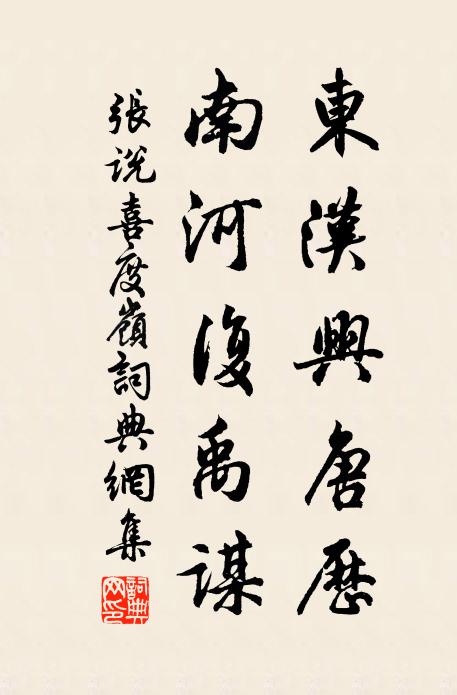 東漢興唐歷
南河復禹謀
張説喜度嶺詞典網集
詞典網印